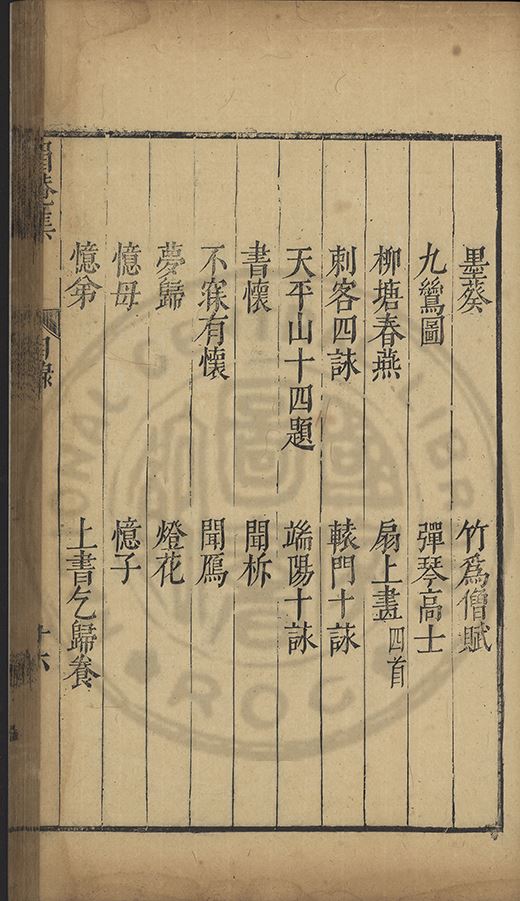 墨葵　竹為僧賦
九鷥圖　彈琴高士
柳塘春燕　扇上畫四首
刺客四詠　轅門十詠
天平山十四題　端陽十詠
書懷　聞柝
不寐有懷　聞鴈
夢歸　燈花
憶母　憶子
憶弟　上書乞歸養
集　目錄　十六